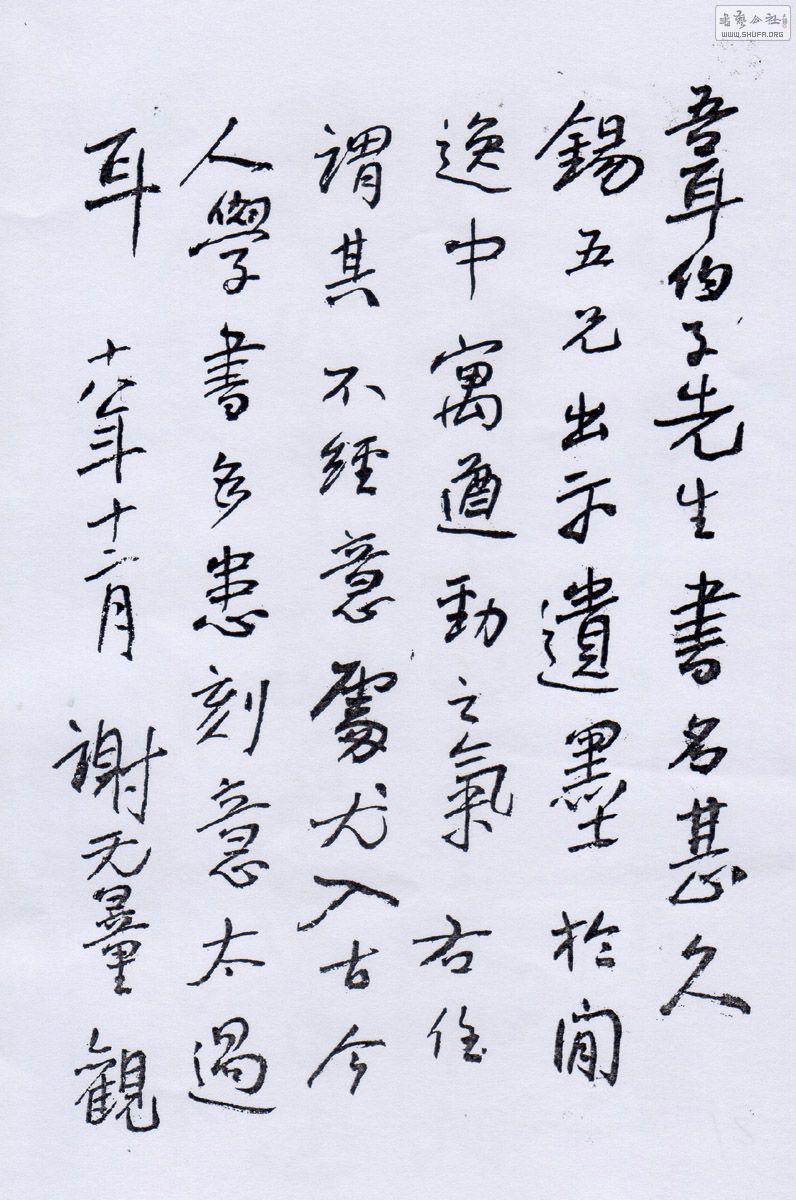 吾耳伯子先生書名甚久
錫五兄出示遺墨於閒
逸中寓遒勁之氣 右任
謂其不經意處尤入古今
人學書多患刻意太過
耳 十八年十二月 謝无量觀
書藝公社
WWW.SHUFA.ORG